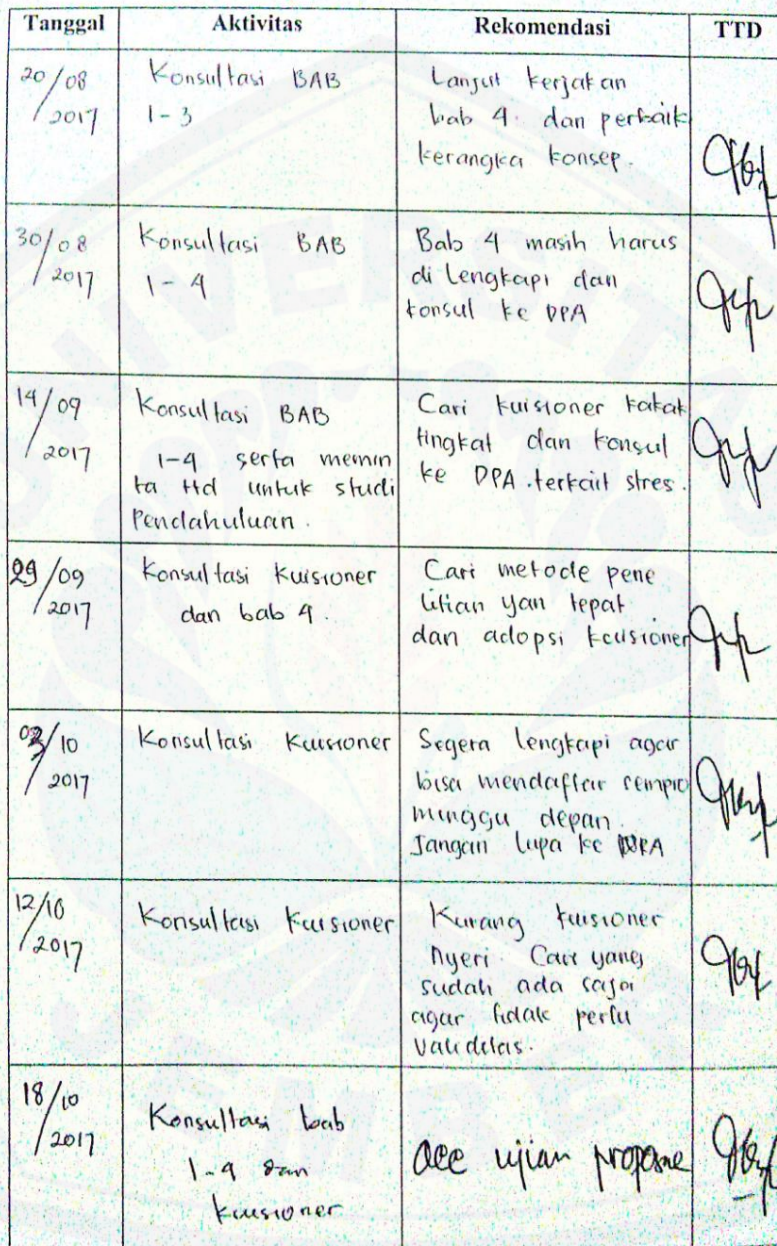 Tanggal Aktivitas Rekomendasi TTD
20/08
2017
Konsultasi BAB
1-3
Lanjut kerjakan
bab 4 dan perbaik
kerangka konsep.
30/08
2017
Konsultasi BAB
1-4
Bab 4 masih harus
di lengkapi dan
konsul ke DPA
14/09
2017
Konsultasi BAB
1-4 serta memin
ta ttd untuk studi
Pendahuluan.
Cari kuisioner kakak
tingkat dan konsul
ke DPA terkait stres.
29/09
2017
Konsultasi Kuisioner
dan bab 4.
Cari metode pene
litian yan tepat
dan adopsi kuisioner
/10
2017
Konsultasi Kuisioner
Segera lengkapi agar
bisa mendaftar sempro
minggu depan.
Jangan lupa ke DPA
12/10
2017
Konsultasi Kuisioner
Kurang kuisioner
nyeri Cari yang
sudah ada saja
agar tidak perlu
validitas.
18/10
2017
Konsultasi bab
1-4 dan
kuisioner
acc ujian
UNIVERSITAS
JEMBER